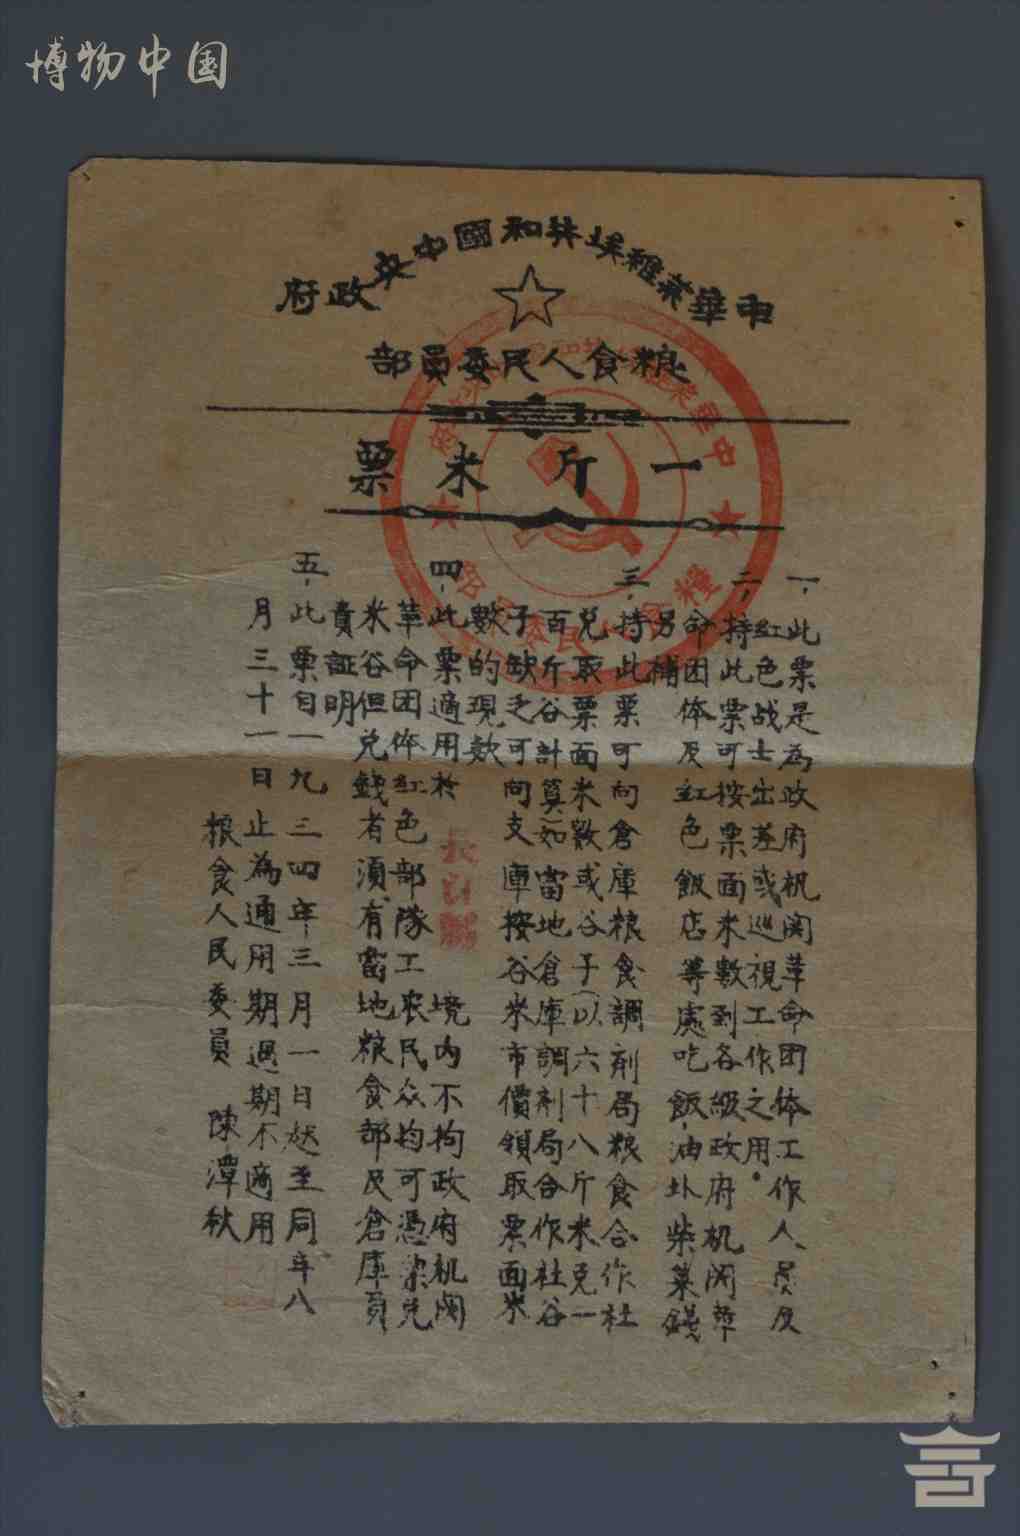 博物中国
中華蘇維埃共和國中央政府
粮食人民委員部
一斤米票
一、此票是為政府机関革命团体工作人員及
红色战士出差或巡視工作之用。
二、持此票可按票面米數到各級政府机関革
命团体及红色飯店等處吃飯油盐柴菜錢
另補
三、持此票可向倉庫粮食調剂局粮食合作社
兑取票面米數或谷子(以六十八斤米兑一
百斤谷計算)如當地倉庫調剂局合作社谷
子缺乏可向支庫按谷米市價領取票面米
數的現欵
四、此票適用於 境内不拘政府机関
革命团体红色部隊工农民众均可憑票兑
米谷但兑錢者須有當地粮食部及倉庫員
責証明
五、此票自一九三四年三月一日起至同年八
月三十一日止為通用期過期不適用
粮食人民委員 陳潭秋